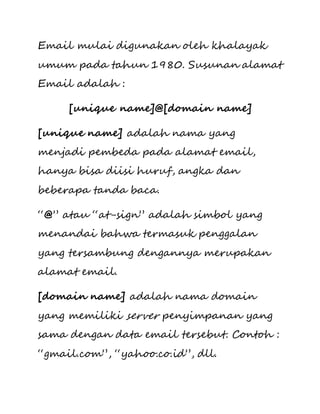 Email mulai digunakan oleh khalayak
umum pada tahun 1980. Susunan alamat
Email adalah :
[unique name]@[domain name]
[unique name] adalah nama yang
menjadi pembeda pada alamat email,
hanya bisa diisi huruf, angka dan
beberapa tanda baca.
“@” atau “at-sign” adalah simbol yang
menandai bahwa termasuk penggalan
yang tersambung dengannya merupakan
alamat email.
[domain name] adalah nama domain
yang memiliki server penyimpanan yang
sama dengan data email tersebut. Contoh :
“gmail.com”, “yahoo.co.id”, dll.